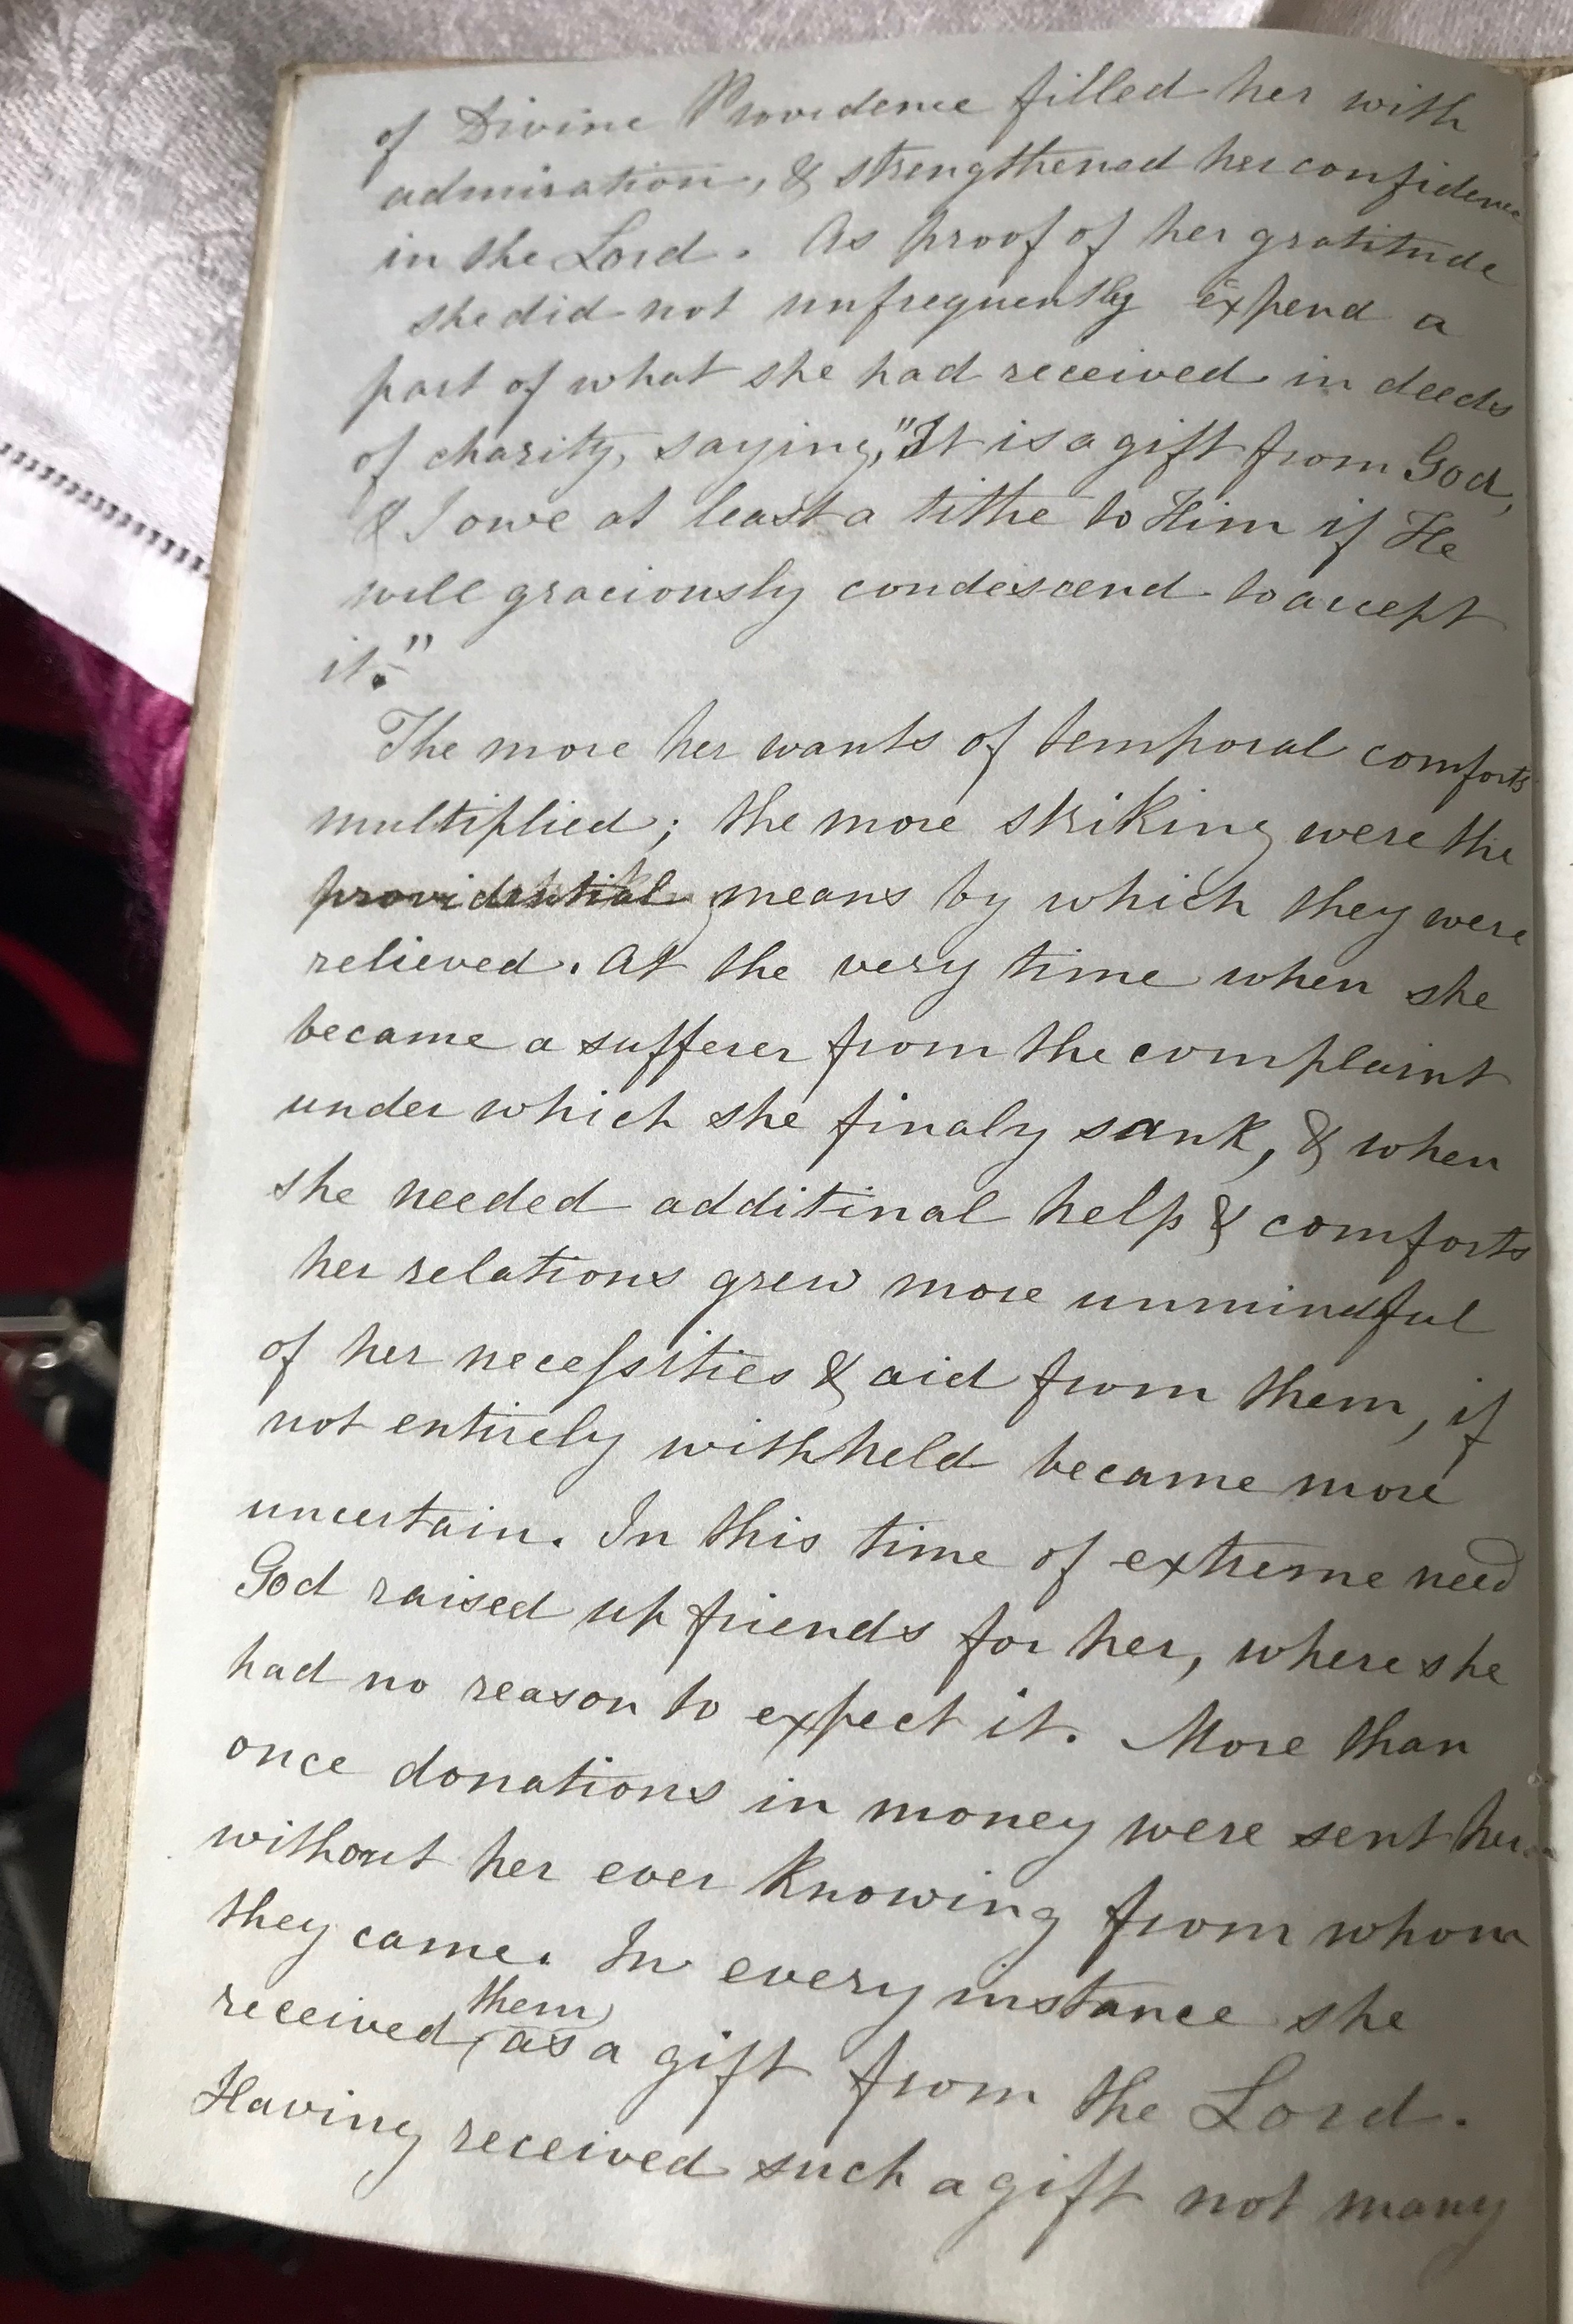 of Divine Providence filled her with
admiration, & strengthened her confidence
in the Lord. As proof of her gratitude
she did not unfrequently expend a
part of what she had received in deeds
of charity, saying, "It is a gift from God,
& I owe at least a tithe to Him if He
will graciously condescend to accept
it."
The more her wants of temporal comforts
multiplied; the more striking were the
providential means by which they were
relieved. At the very time when she
became a sufferer from the complaint
under which she finaly sank, & when
she needed additinal help & comforts
her relations grew more unmindful
of her neceſsities & aid from them, if
not entirely withheld became more
uncertain. In this time of extreme need
God raised up friends for her, where she
had no reason to expect it. More than
once donations in money were sent her
without her ever knowing from whom
they came. In every instance she
received them as a gift from the Lord.
Having received such a gift not many